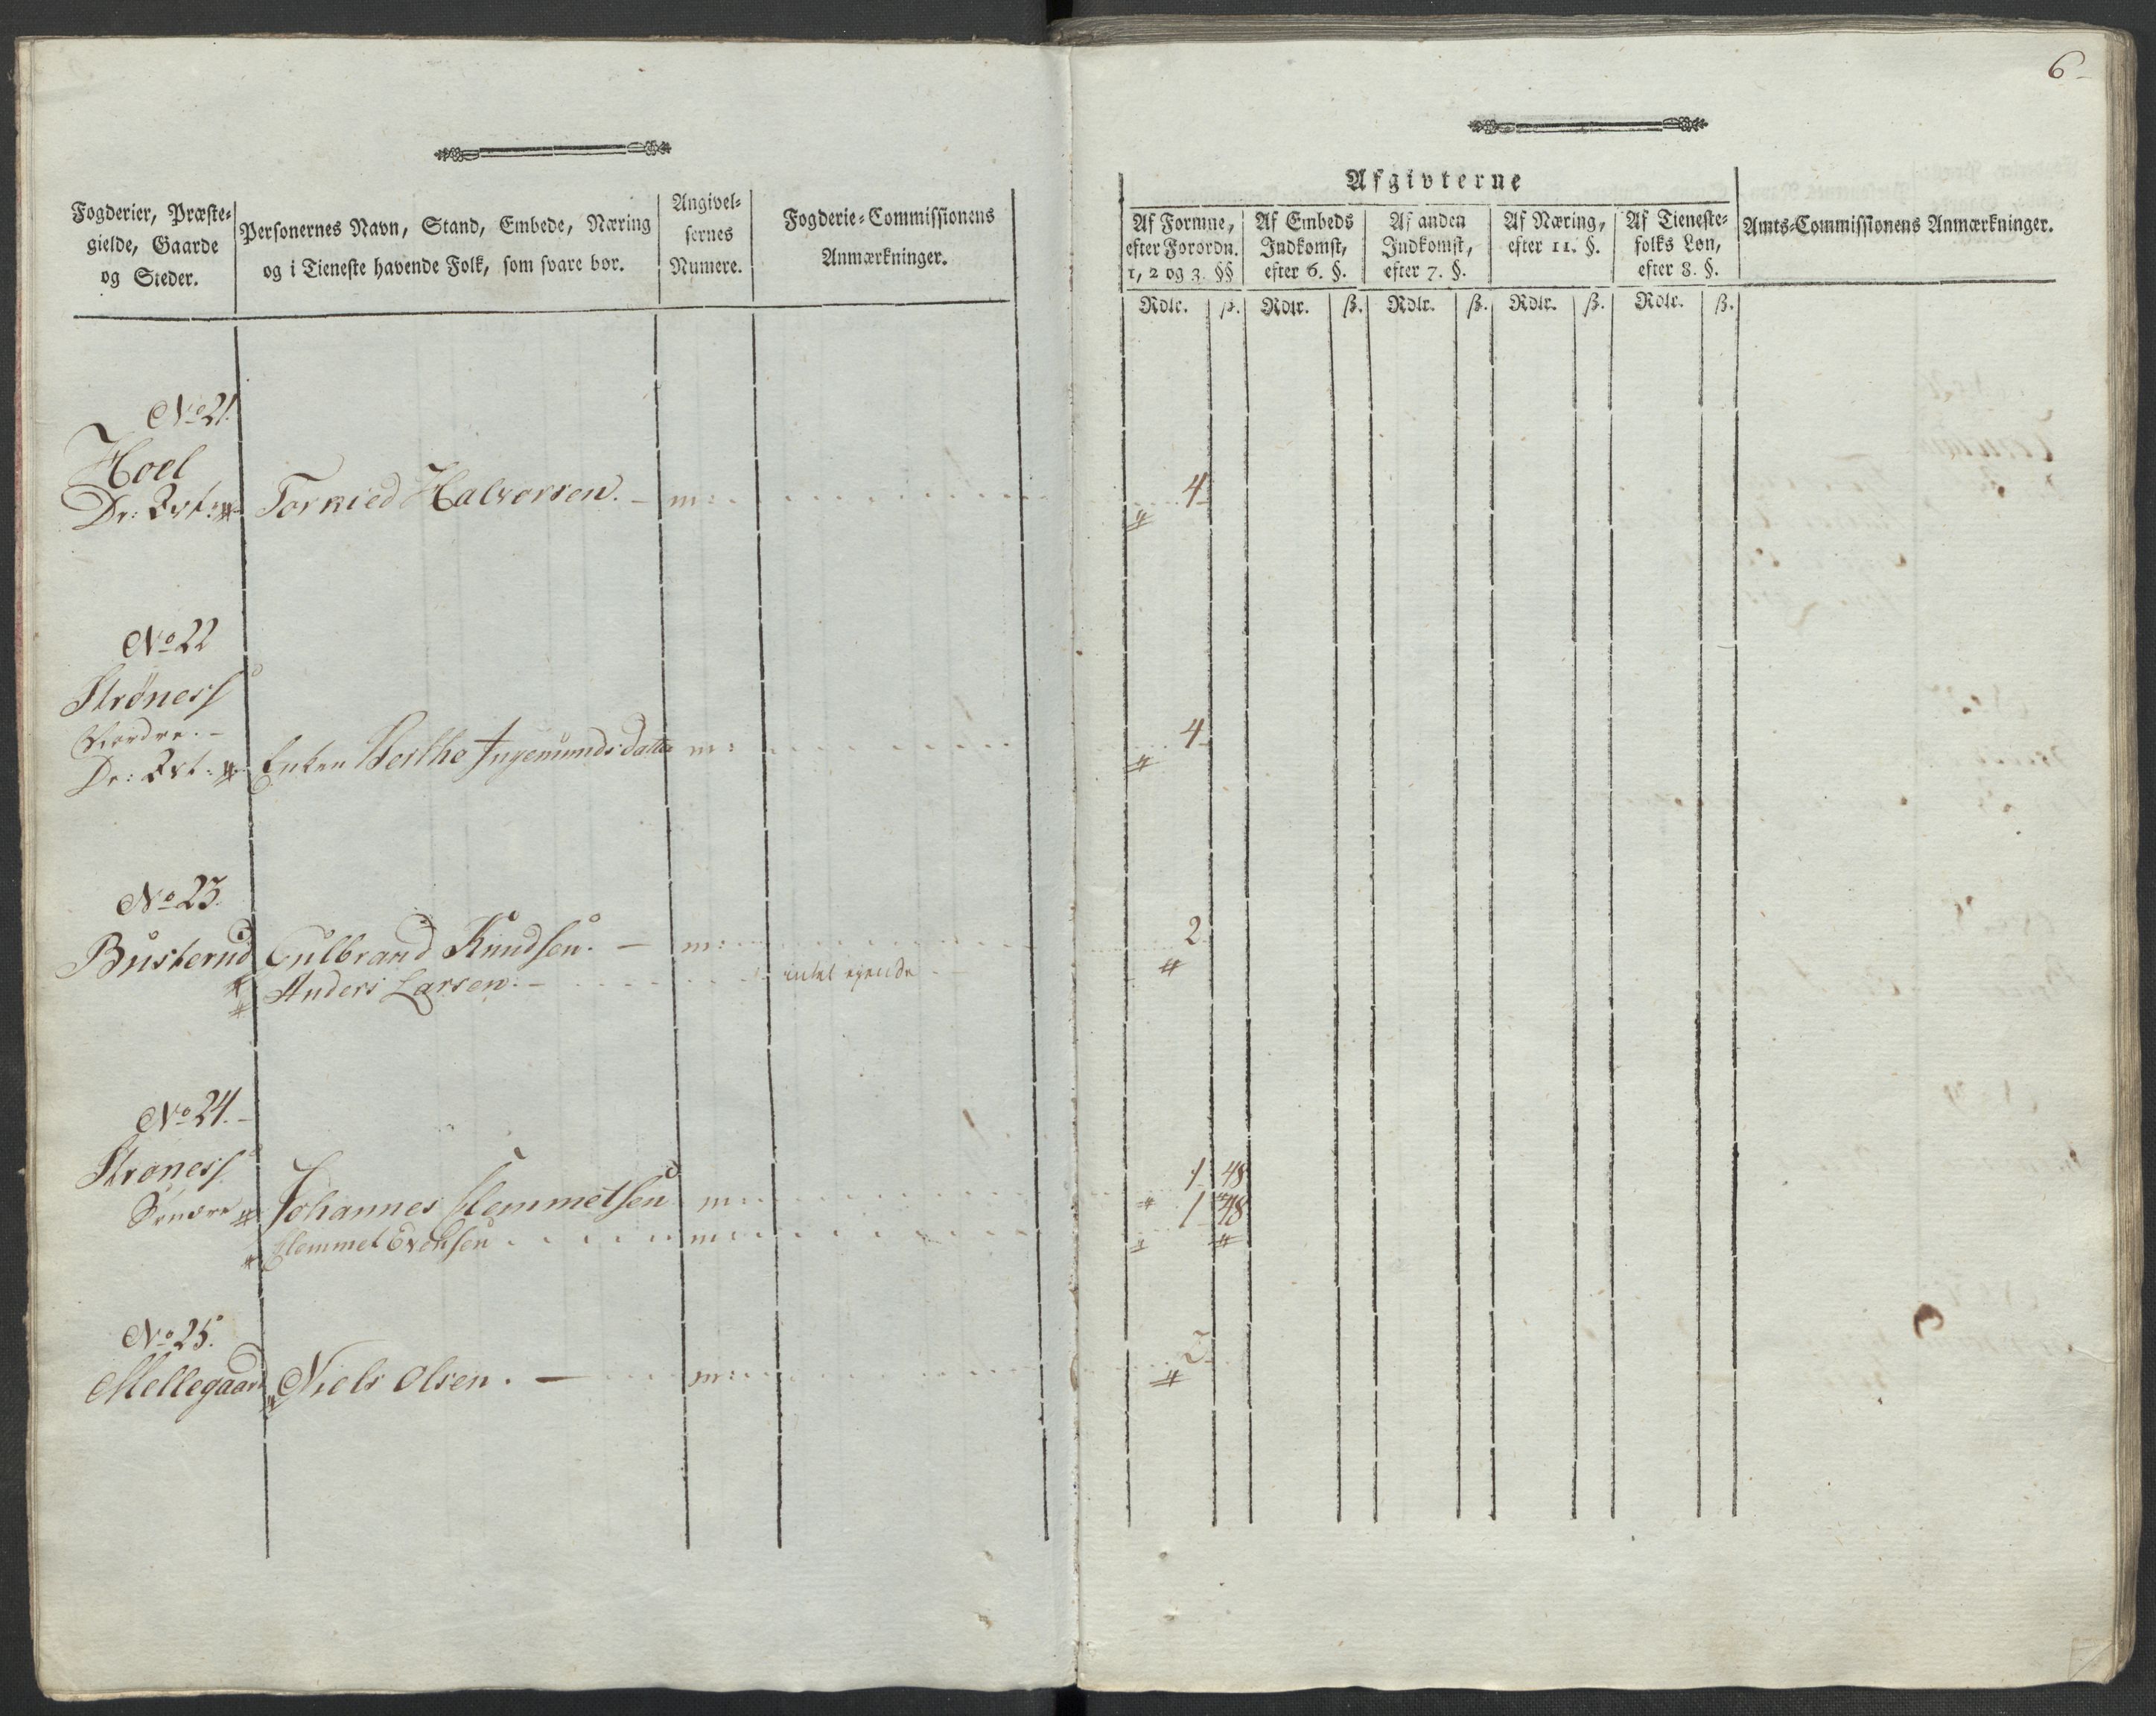 6
Fogderier, Præste-
gielde, Gaarde
og Steder.
Personernes Navn, Stand, Embede, Næring
og i Tieneste havende Folk, som svare bør.
Angivel-
sernes
Numere.
Fogderie-Commissionens
Anmærkninger.
Afgivterne
Af Formue,
efter Forordn.
1, 2 og 3. §§
Af Embeds
Indkomst,
efter 6. §.
Af anden
Indkomst,
efter 7. §.
Af Næring,
efter 11. §.
Af Tieneste-
folks Løn,
efter 8. §.
Amts-Commissionens Anmærkninger.
Rdlr. ß. Rdlr. ß. Rdlr. ß. Rdlr. ß. Rdlr. ß.
No 21.
Hoel
Torkied Halvorsen. m: 4
No 22
Strøness
Nordre.
Enken Berthe Ingemundsdatter m: 4
No 23.
Busterud Gulbrand Knudsen. m: 2
Anders Larsen. intet ejende
No 24.
Strøness
Søndre Johannes Clemmetsen m: 1 48
Clemmet Evensen m: 1 48
No 25.
Mellegaard Niels Olsen. m: 2